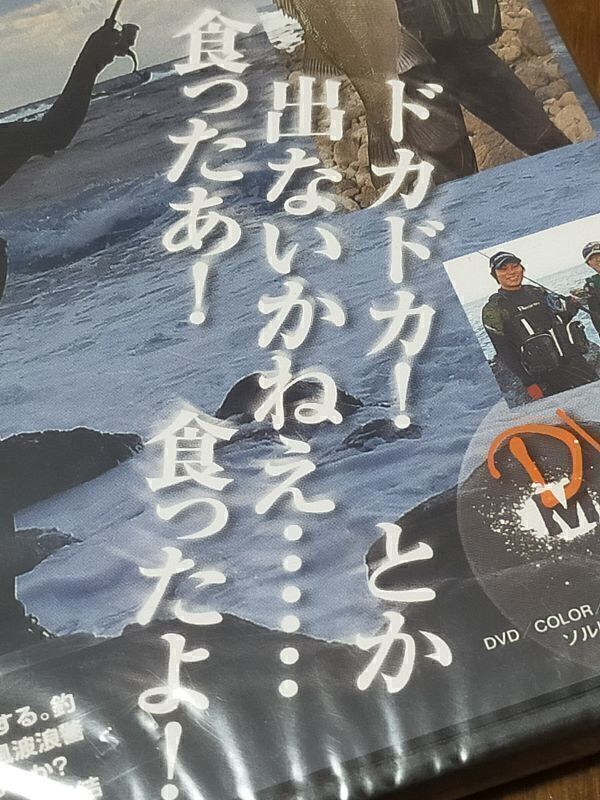 ドカドカ！ とか
出ないかねえ……
食ったあ！ 食ったよ！
DVD／COLOR／
ソル
する。約
風波浪警
か？